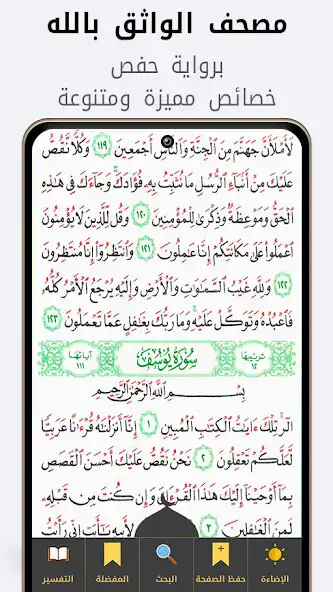 مصحف الواثق بالله
برواية حفص
خصائص مميزة ومتنوعة
لَأَمْلَأَنَّ جَهَنَّمَ مِنَ ٱلْجِنَّةِ وَٱلنَّاسِ أَجْمَعِينَ ١١٩ وَكُلًّا نَّقُصُّ
عَلَيْكَ مِنْ أَنۢبَآءِ ٱلرُّسُلِ مَا نُثَبِّتُ بِهِۦ فُؤَادَكَ وَجَآءَكَ فِى هَٰذِهِ
ٱلْحَقُّ وَمَوْعِظَةٌ وَذِكْرَىٰ لِلْمُؤْمِنِينَ ١٢٠ وَقُل لِّلَّذِينَ لَا يُؤْمِنُونَ
ٱعْمَلُوا۟ عَلَىٰ مَكَانَتِكُمْ إِنَّا عَٰمِلُونَ ١٢١ وَٱنتَظِرُوٓا۟ إِنَّا مُنتَظِرُونَ
١٢٢ وَلِلَّهِ غَيْبُ ٱلسَّمَٰوَٰتِ وَٱلْأَرْضِ وَإِلَيْهِ يُرْجَعُ ٱلْأَمْرُ كُلُّهُۥ
فَٱعْبُدْهُ وَتَوَكَّلْ عَلَيْهِ وَمَا رَبُّكَ بِغَٰفِلٍ عَمَّا تَعْمَلُونَ ١٢٣
ترتيبها ١٢ سُورَةُ يُوسُفَ آياتها ١١١
بِسْمِ ٱللَّهِ ٱلرَّحْمَٰنِ ٱلرَّحِيمِ
الٓر تِلْكَ ءَايَٰتُ ٱلْكِتَٰبِ ٱلْمُبِينِ ١ إِنَّآ أَنزَلْنَٰهُ قُرْءَٰنًا عَرَبِيًّا
لَّعَلَّكُمْ تَعْقِلُونَ ٢ نَحْنُ نَقُصُّ عَلَيْكَ أَحْسَنَ ٱلْقَصَصِ
بِمَآ أَوْحَيْنَآ إِلَيْكَ هَٰذَا ٱلْقُرْءَانَ وَإِن كُنتَ مِن قَبْلِهِۦ
لَمِنَ ٱلْغَٰفِلِينَ ٣ لِأَبِيهِ يَٰٓأَبَتِ إِنِّى رَأَيْتُ
الإضاءة
حفظ الصفحة
البحث
المفضلة
التفسير